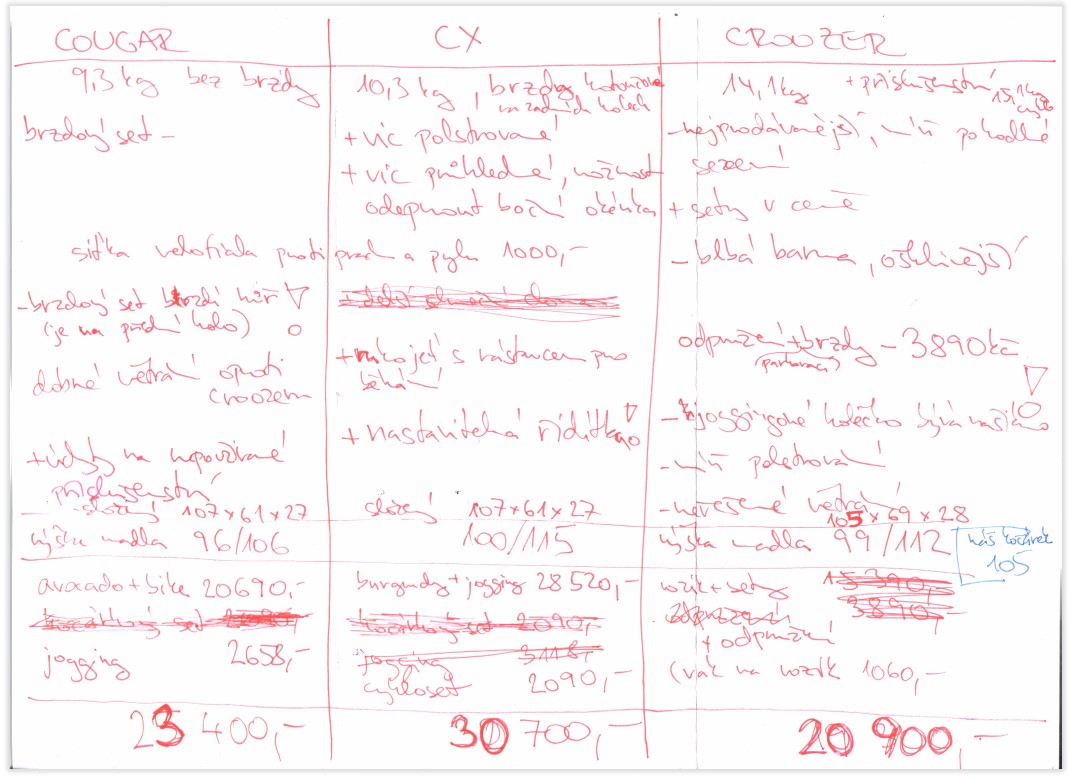 COUGAR
9,3 kg bez brzdy
brzdový set -
síťka vchodu proti prach a pylu 1000,-
- brzdový set brzdí hůř
(je na přední kolo)
dobré větrání oproti
croozeru
+ úchyty na nepoužívané
příslušenství
- složený 107x61x27
výška madla 96/106
avocado + bike 20690,-
kočárkový set 2090,-
jogging 2658,-
23 400,-
CX
10,3 kg, brzdy kotoučové
na zadních kolech
+ víc polstrované
+ víc průhledné, možnost
odepnout boční okénka
+ delší
+ rukojeť s nástavcem pro
běhání
+ nastavitelná řídítka
složený 107x61x27
100/115
burgundy + jogging 28520,-
kočárkový set 2090,-
jogging 3118,-
cykloset 2090,-
30 700,-
CROOZER
14,1kg + příslušenství
- nejprodávanější, míň pohodlné
sezení
+ sety v ceně
- blbá barva, ošklivější
odpružení + brzdy - 3890 kč
(parkovací)
- joggingové kolečko bývá našikmo
- míň polstrování
- neřešené větrání
105x69x28
výška madla 99/112
náš kočárek
105
vozík + sety 15 390,-
odpružení 3890,-
+ odpružení
(vak na vozík 1060,-
20 900,-